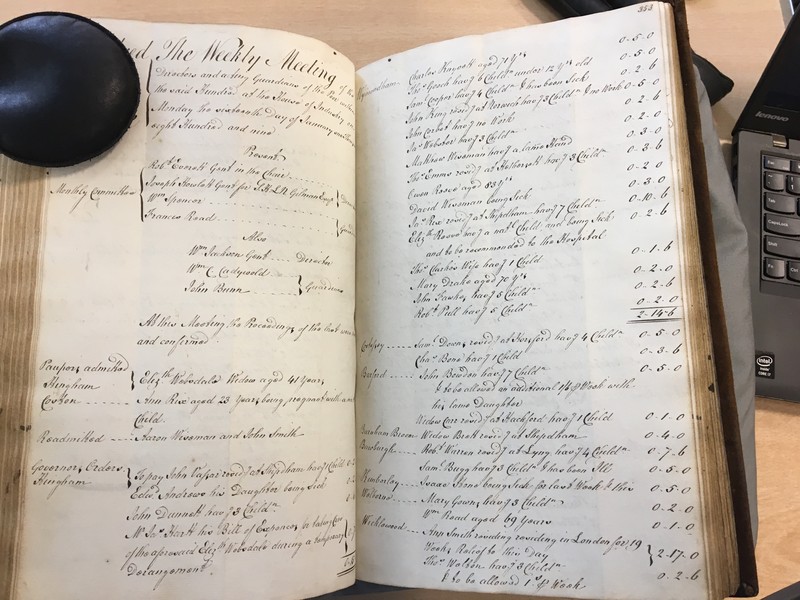 The Weekly Meeting of the
Directors and acting Guardians of the Poor within
the said Hundred at the House of Industry on
Monday the sixteenth Day of January
eight Hundred and nine
Present
Robt. Everett Gent in the Chair
Monthly Committee
Joseph Gent for S. H. LeN. Gilman Esqr.
Wm. Spencer
Francis Road
Also
Wm. Jackson Gent .... Director
Wm. C. Ladywold
John Bunn
Guardians
At this Meeting the Proceedings of the last were
and confirmed
Paupers admitted
Hingham
Elizth. Wobsdale Widow aged 41 Years
Coston
Ann Rix aged 23 Years being pregnant with a
Child.
Readmitted
Aaron Wiseman and John Smith
Governors Orders
Hingham
To pay John residg. at Shipdham havg. 1 Child
Andrews his Daughter being Sick
John Dunnett havg. 3 Childn.
Mr. Jas. Hartt his Bill of Expences in taking Care
of the aforesaid Elizth. Wobsdale during a temporary
Derangement
353
Wymondham
Charles aged 71 Yrs. 0-5-0
Thos. Gooch havg. 6 Childn. under 12 Yrs. old 0-5-0
Saml. Cooper havg. 4 Childn. & has been Sick 0-2-6
John King residg. at Norwich havg. 3 Childn. & no Work 0-5-0
John Corbet havg. no Work 0-2-6
Jas. Webster havg. 3 Childn. 0-2-6
Matthew Wiseman havg. a lame Hand 0-3-0
Thos. Emms residg. at Hethersett havg. 3 Childn. 0-3-6
Owen Reeve aged 83 Yrs. 0-2-0
David Wiseman being Sick 0-3-0
Jas. Rix residg. at Shipdham havg. 7 Childn. 0-10-6
Elizth. Reeve havg. a natl. Child and being Sick 0-2-6
and to be recommended to the Hospital
Thos. Clarkes Wife havg. 1 Child 0-1-6
Mary Drake aged 70 Yrs. 0-2-0
John havg. 5 Childn. 0-2-6
Robt. Pull havg. 5 Childn. 0-2-0
2-14-6
Costessey
Saml. Downs residg. at Horsford havg. 4 Childn. 0-5-0
Chas. Bone havg. 1 Child 0-3-6
Barford
John Bowdon havg. 7 Childn. 0-5-0
& to be allowed an additional 1s/ Week with
his lame Daughter
Widow Carr residg. at Hackford havg. 1 Child 0-1-0
Burnham Broom
Widow Brett residg. at Shipdham 0-4-0
Bawburgh
Robt. Warren residg. at Lyng havg. 4 Childn. 0-7-6
Saml. Bugg havg. 3 Childn. & has been Ill 0-5-0
Kimberley
Isaac being Sick for last Week & this 0-5-0
Welborne
Mary Gown havg. 3 Childn. 0-2-0
Wm. Read aged 69 Years 0-1-0
Wicklewood
Ann Smith residing in London for 19
Weeks Relief to this Day 2-17-0
Thos. Watson havg. 3 Childn. 0-2-6
& to be allowed 1s. Week
lenovo
Tab
CapsLock
Shift
Fn
Ctrl
intel